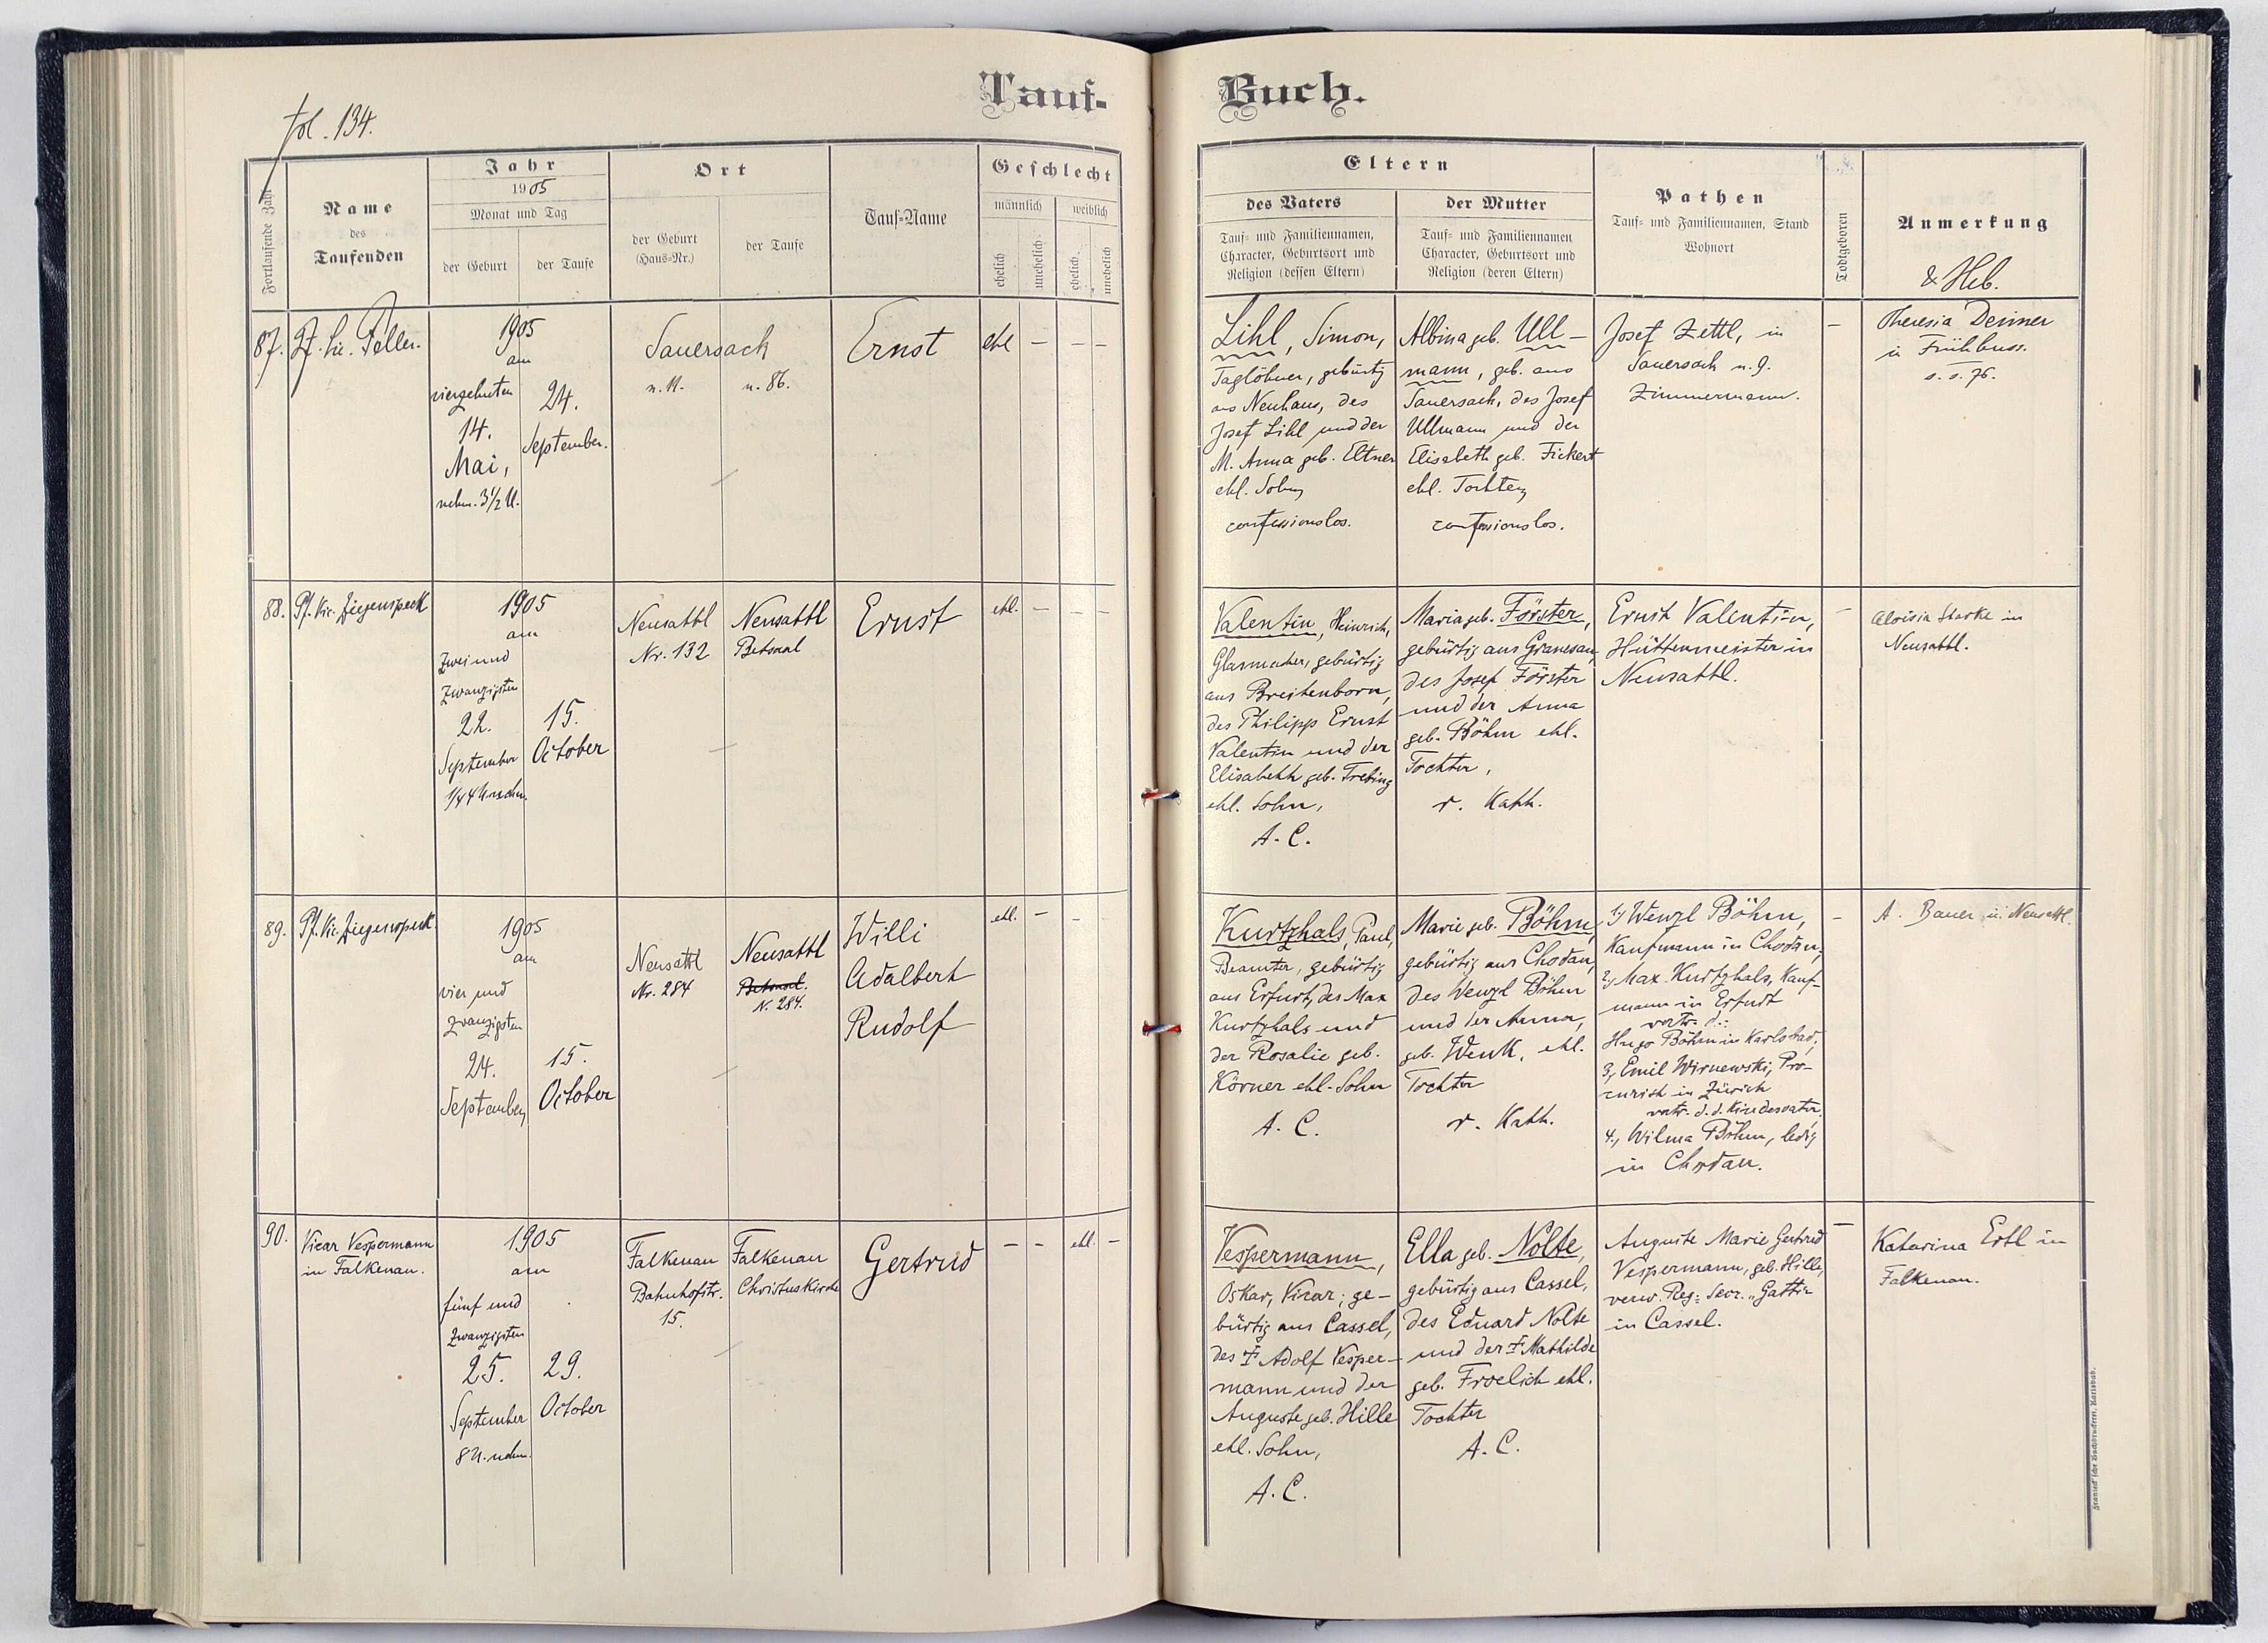 Tauf-
Buch.
fol. 134.
Fortlaufende Zahl
Name
des
Taufenden
Jahr
1905
Monat und Tag
der Geburt
der Taufe
Ort
der Geburt
(Haus-Nr.)
der Taufe
Tauf-Name
Geschlecht
männlich
weiblich
ehelich
unehelich
ehelich
unehelich
Eltern
des Vaters
Tauf- und Familiennamen,
Character, Geburtsort und
Religion (dessen Eltern)
der Mutter
Tauf- und Familiennamen
Character, Geburtsort und
Religion (deren Eltern)
Pathen
Tauf- und Familiennamen, Stand
Wohnort
Todtgeboren
Anmerkung
& Heb.
87.
1905
am
vierzehnten
14.
Mai,
nchm. 3 1/2 U.
24.
September.
Sauersack
n. 11.
n. 86.
Ernst
ehl
—
—
—
Lihl, Simon,
Taglöhner, gebürtig
aus Neuhaus, des
Josef Lihl und der
M. Anna geb. Eltner
ehl. Sohn,
confessionslos.
Albina geb. Ull-
mann, geb. aus
Sauersack, des Josef
Ullmann und der
Elisabeth geb. Fickert
ehl. Tochter,
confessionslos.
Josef Zettl, in
Sauersack n. 9.
Zimmermann.
—
Theresia
in Frühbuss.
76.
88.
Pf. Vic. Ziegenspeck
1905
am
zwei und
zwanzigsten
22.
September
1/4 4 U. nachm.
15.
October
Neusattl
Nr. 132
Neusattl
Betsaal
Ernst
ehl.
—
—
—
Valentin, Heinrich,
Glasmacher, gebürtig
aus Breitenborn,
des Philipp Ernst
Valentin und der
Elisabeth geb. Trebing
ehl. Sohn,
A. C.
Maria geb. Förster,
gebürtig aus Granesau,
des Josef Förster
und der Anna
geb. Böhm ehl.
Tochter,
r. Kath.
Ernst Valentin,
Hüttenmeister in
Neusattl.
—
Aloisia Starke in
Neusattl.
89.
Pf. Vic. Ziegenspeck
1905
am
vier und
zwanzigsten
24.
September
15.
October
Neusattl
Nr. 284
Neusattl
Betsaal.
N. 284.
Willi
Adalbert
Rudolf
ehl.
—
—
Kurtzhals, Paul,
Beamter, gebürtig
aus Erfurt, des Max
Kurtzhals und
der Rosalie geb.
Körner ehl. Sohn
A. C.
Marie geb. Böhm,
gebürtig aus Chodau,
des Wenzl Böhm
und der Anna,
geb. Wenk, ehl.
Tochter
r. Kath.
1, Wenzl Böhm,
Kaufmann in Chodau;
2, Max Kurtzhals, Kauf-
mann in Erfurt
vertr. d.:
Hugo Böhm in Karlsbad;
3, Emil Wirnewski, Pro-
curist in Zürich
vertr. d. d. Kindesvater,
4, Wilma Böhm, ledig
in Chodau.
—
A. Bauer in Neusattl.
90.
Vicar Vespermann
in Falkenau.
1905
am
fünf und
zwanzigsten
25.
September
8 U. nchm.
29.
October
Falkenau
Bahnhofstr.
15.
Falkenau
Christuskirche
Gertrud
—
—
ehl.
—
Vespermann,
Oskar, Vicar; ge-
bürtig aus Cassel,
des † Adolf Vesper-
mann und der
Auguste geb. Hille
ehl. Sohn,
A. C.
Ella geb. Nolte,
gebürtig aus Cassel,
des Eduard Nolte
und der † Mathilde
geb. Froelich ehl.
Tochter
A. C.
Auguste Marie Gertrud
Vespermann, geb. Hille,
verw. Reg.-Secr.-Gattin
in Cassel.
—
Katarina Ertl in
Falkenau.